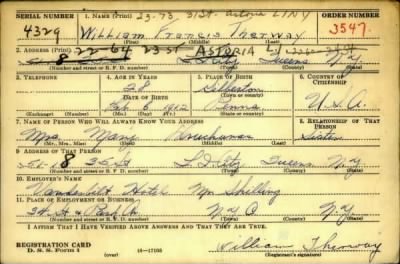 SERIAL NUMBER 1. NAME (Print) 23-73, 31st Astoria L I N Y ORDER NUMBER
4329 William Francis 3547.
(First) (Middle) (Last)
2. ADDRESS (Print) 22-64 23 St ASTORIA
8 Queens N.Y.
(Number and street or R. F. D. number) (Town) (County) (State)
3. TELEPHONE 4. AGE IN YEARS 5. PLACE OF BIRTH 6. COUNTRY OF CITIZENSHIP
28 Gilberton
DATE OF BIRTH (Town or county)
Feb 8 1912 Penna U.S.A.
(Exchange) (Number) (Mo.) (Day) (Yr.) (State or country)
7. NAME OF PERSON WHO WILL ALWAYS KNOW YOUR ADDRESS 8. RELATIONSHIP OF THAT PERSON
Mrs. Mary Sister
(Mr., Mrs., Miss) (First) (Middle) (Last)
9. ADDRESS OF THAT PERSON
8 35 St L.I. City Queens N.Y.
(Number and street or R. F. D. number) (Town) (County) (State)
10. EMPLOYER'S NAME
Vanderbilt Hotel Mr
11. PLACE OF EMPLOYMENT OR BUSINESS
34 St & Park A N Y C N.Y.
(Number and street or R. F. D. number) (Town) (County) (State)
I AFFIRM THAT I HAVE VERIFIED ABOVE ANSWERS AND THAT THEY ARE TRUE.
REGISTRATION CARD
D. S. S. Form 1 16-17105 William
(over) (Registrant's signature)